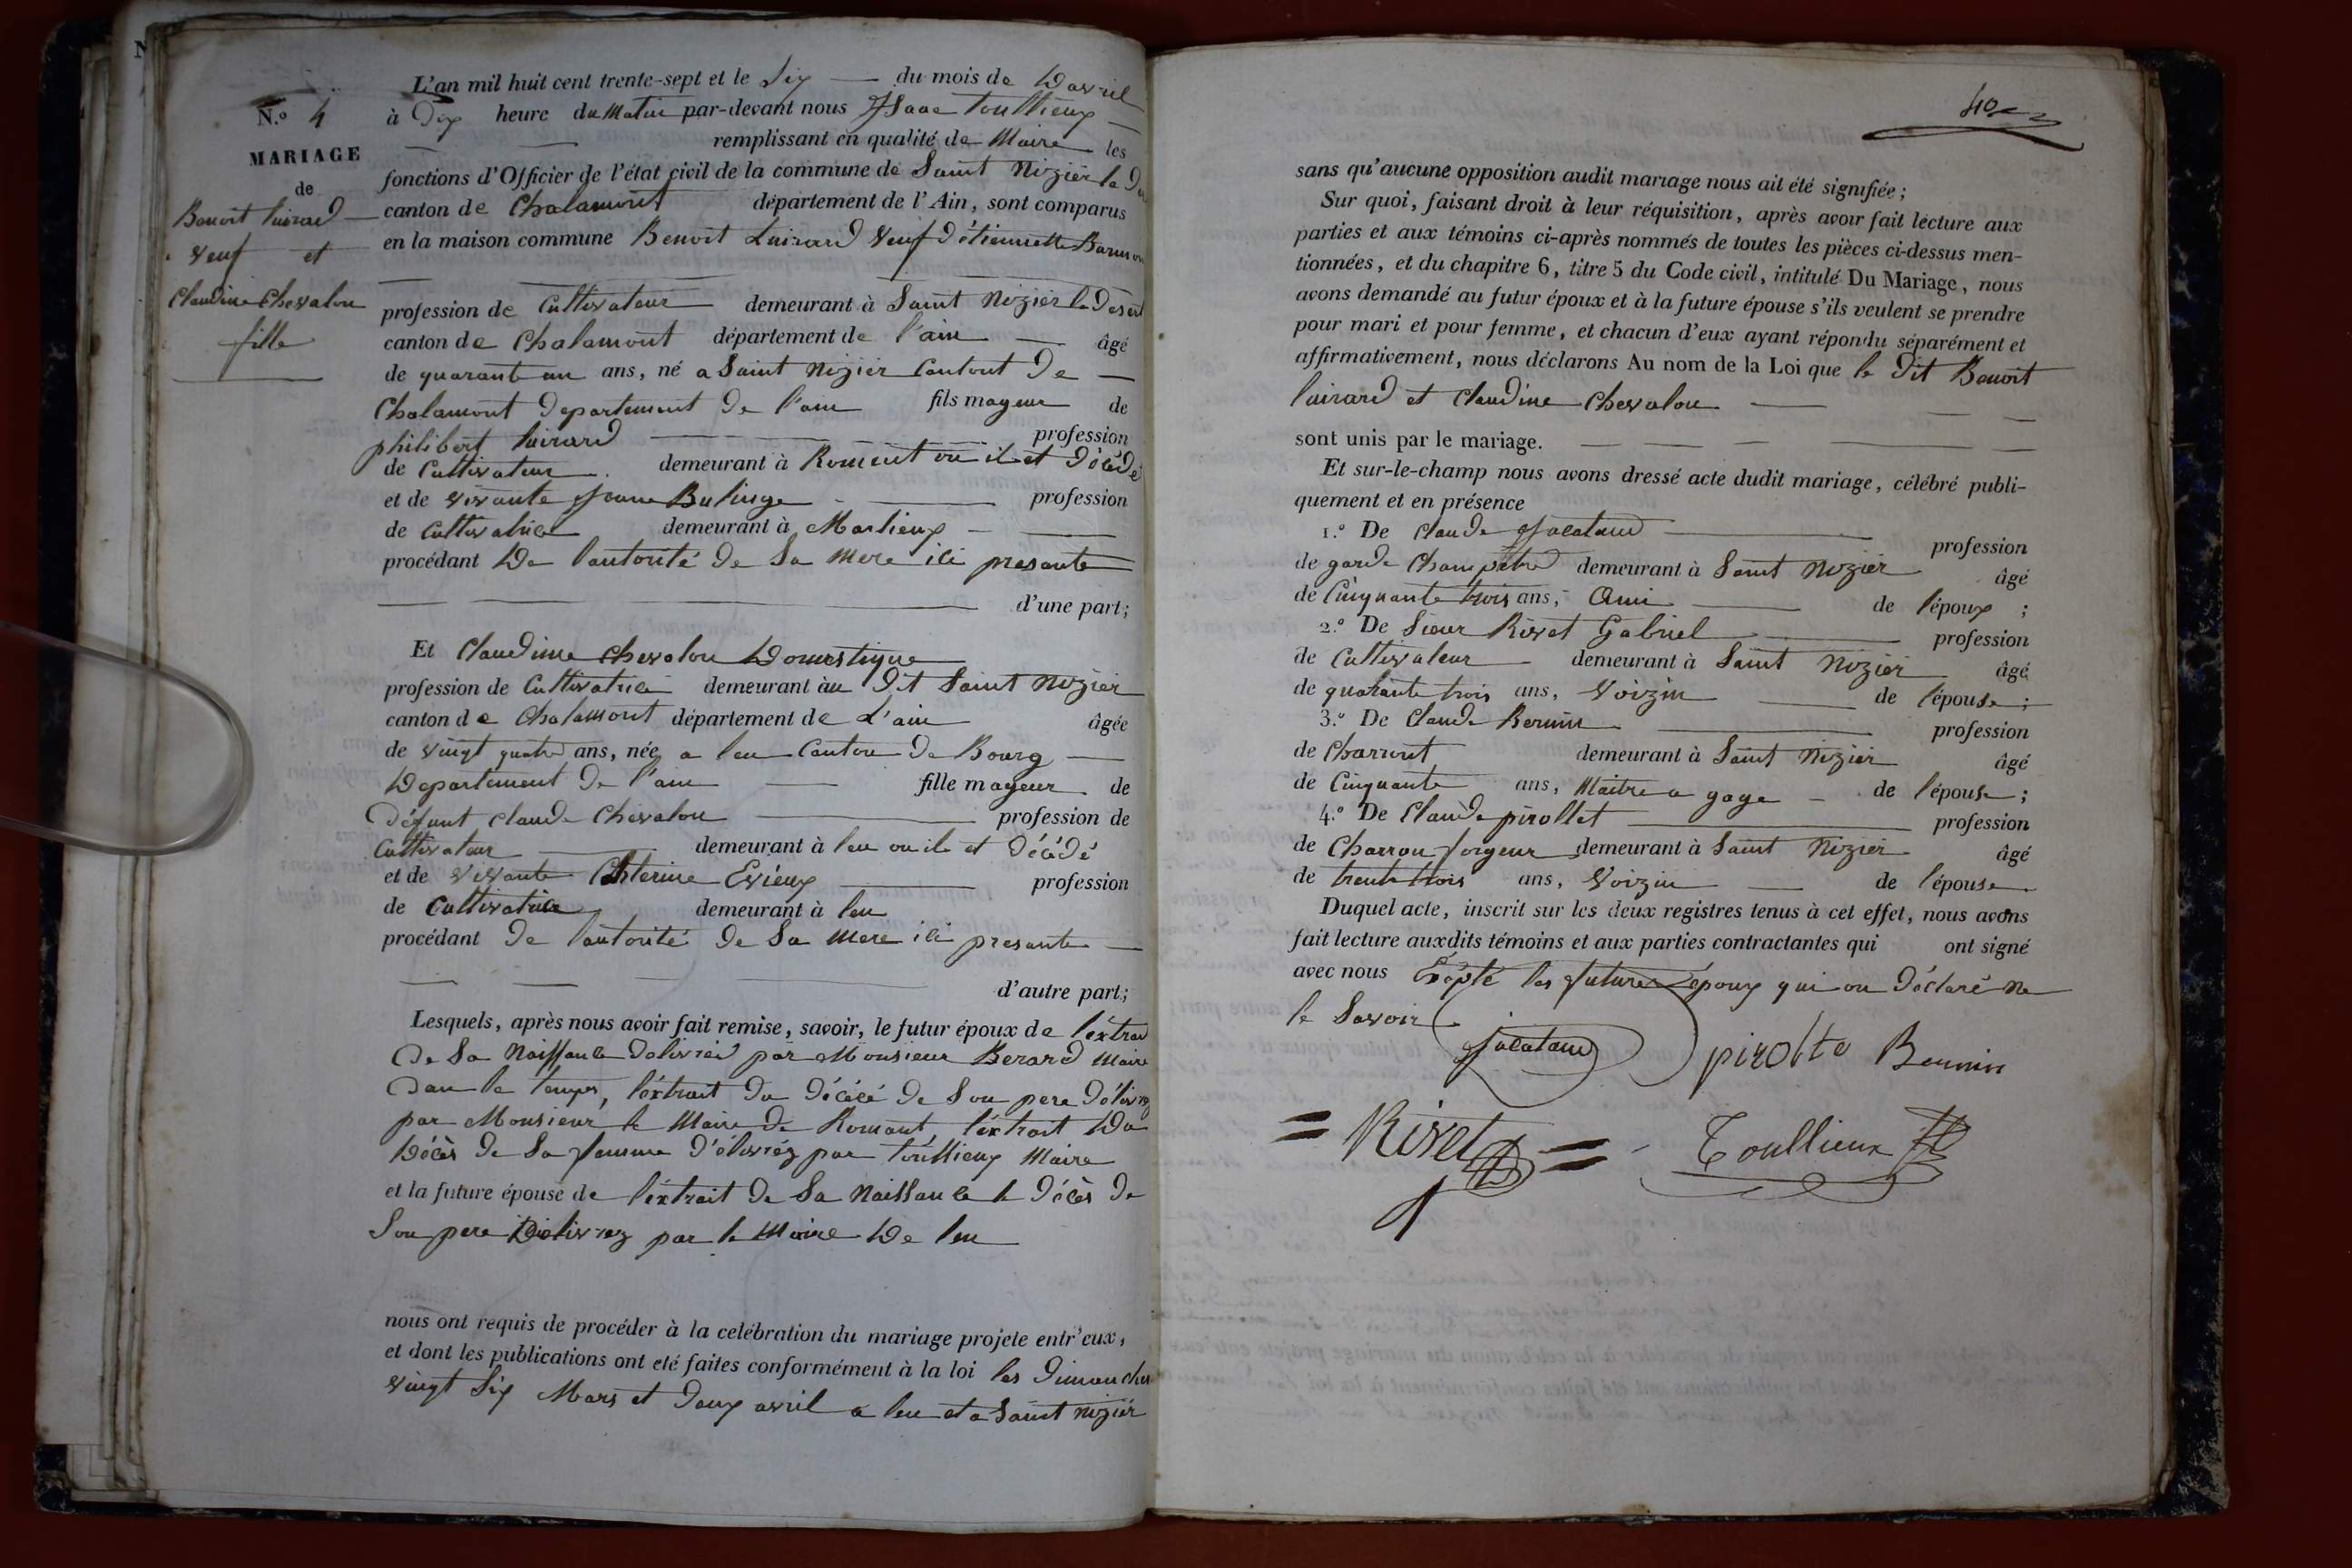 L'an mil huit cent trente-sept et le Six du mois de Davril
N.º 4 à Dix heure du Matin par-devant nous Isaac Toullieux
remplissant en qualité de Maire les
MARIAGE
fonctions d'Officier de l'état civil de la commune de Saint Nizier le
de
canton de Chalamont département de l'Ain, sont comparus
Benoit luirard
en la maison commune Benoit Luirard Veuf d'étiennette
Veuf et
Claudine Chevalon
fille
profession de Cultivateur demeurant à Saint Nizier le Désert
canton de Chalamont département de l'ain âgé
de quarant un ans, né a Saint Nizier Cantont De
Chalamont Departement De l'ain fils mageur de
philibert luirard profession
de Cultivateur demeurant à Roment ou il et Décédé
et de vivante Jeane Bulinge profession
de Cultivatrice demeurant à Marlieux
procédant De l'autorité De Sa Mere ici presante
d'une part;
Et Claudine Chevalon Domestique
profession de Cultivatrice demeurant àu Dit Saint Nizier
canton de Chalamont département de L'ain âgée
de vingt quatre ans, née a leu Canton De Bourg
Departement De l'ain fille mageur de
Défunt Claude Chevalon profession de
Cultivateur demeurant à leu ou il et Décédé
et de vivante Chterine Evieux profession
de Cultivatrice demeurant à leu
procédant De l'autorité De Sa Mere ici presante
d'autre part;
Lesquels, après nous avoir fait remise, savoir, le futur époux de l'éxtrai
De Sa Naissance Délivrée par Monsieur Berard Maire
Dan le temps, l'éxtrait Du Décécé De Son pere Délivre
par Monsieur le Maire De Romant, l'éxtrait Du
Décès De Sa famme D'élivréz par Toullieux Maire
et la future épouse de l'éxtrait De Sa Naissance le Décès De
Son pere Délivrez par le Maire De leu
nous ont requis de procéder à la celébration du mariage projeté entr'eux,
et dont les publications ont été faites conformément à la loi les Dimanches
vingt Six Mars et Deux avril a leu et a Saint Nizier
40
sans qu'aucune opposition audit mariage nous ait été signifiée;
Sur quoi, faisant droit à leur réquisition, après avoir fait lecture aux
parties et aux témoins ci-après nommés de toutes les pièces ci-dessus men-
tionnées, et du chapitre 6, titre 5 du Code civil, intitulé Du Mariage, nous
avons demandé au futur époux et à la future épouse s'ils veulent se prendre
pour mari et pour femme, et chacun d'eux ayant répondu séparément et
affirmativement, nous déclarons Au nom de la Loi que le Dit Benoit
luirard et Claudine Chevalon
sont unis par le mariage.
Et sur-le-champ nous avons dressé acte dudit mariage, célébré publi-
quement et en présence
1.º De Claude Jacataud profession
de garde Champetre demeurant à Saint Nizier âgé
de Cinquante trois ans, Ami de l'époux;
2.º De Sieur Rivet Gabriel profession
de Cultivateur demeurant à Saint Nizier âgé
de quarante trois ans, Voizin de l'épouse;
3.º De Claude Bernin profession
de Charront demeurant à Saint Nizier âgé
de Cinquante ans, Maitre a gage de l'épouse;
4.º De Claude pirollet profession
de Charron forgeur demeurant à Saint Nizier âgé
de trente trois ans, Voizin de l'épouse
Duquel acte, inscrit sur les deux registres tenus à cet effet, nous avons
fait lecture auxdits témoins et aux parties contractantes qui ont signé
avec nous Éxépté les future époux qui on Déclaré ne
le Savoir
Jacataud pirolte Bernin
= Rivet = Toullieux